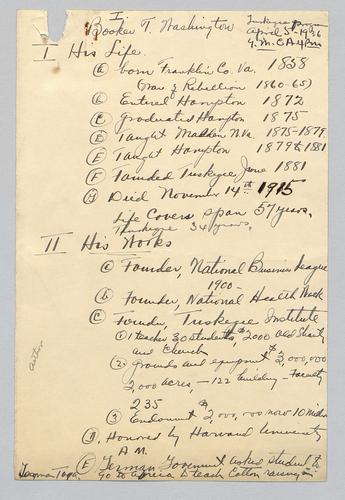 I
Booker T. Washington
April 5-1936
Y.M.C.A 4pm
I His Life.
a born Franklin Co. Va. 1858
(War of Rebellion 1860-65)
b Entered Hampton 1872
C graduated Hampton 1875
E Taught Malden N.Va. 1875-1879
E Taught Hampton 1879 & 1881
F Founded Tuskegee, June 1881
G Died November 14th 1915
Life Covers span 57 years.
Tuskegee 34 years.
II His Works
a Founder, National Business League
1900-
b Founder, National Health Week
C Founder, Tuskegee Institute
1 1 teacher 30 students, $2000 old Shanty
and Church
2. Grounds and equipment $2,000,000
2,000 acres, - 122 building - Faculty
235
3 Endowment $2,000,000 now 10 million
d Honored by Harvard University
A.M.
E German Goverment asked student to
Togma Togo go to Africa to teach Cotton raising